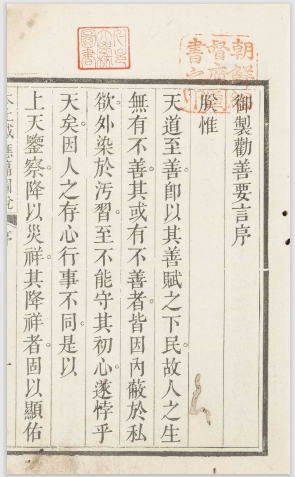 御製勸善要言序
朕惟
天道至善卽以其善賦之下民故人之生
無有不善其或有不善者皆因內蔽於私
欲外染於汚習至不能守其初心遂悖乎
天矣因人之存心行事不同是以
上天鑒察降以災祥其降祥者固以顯佑